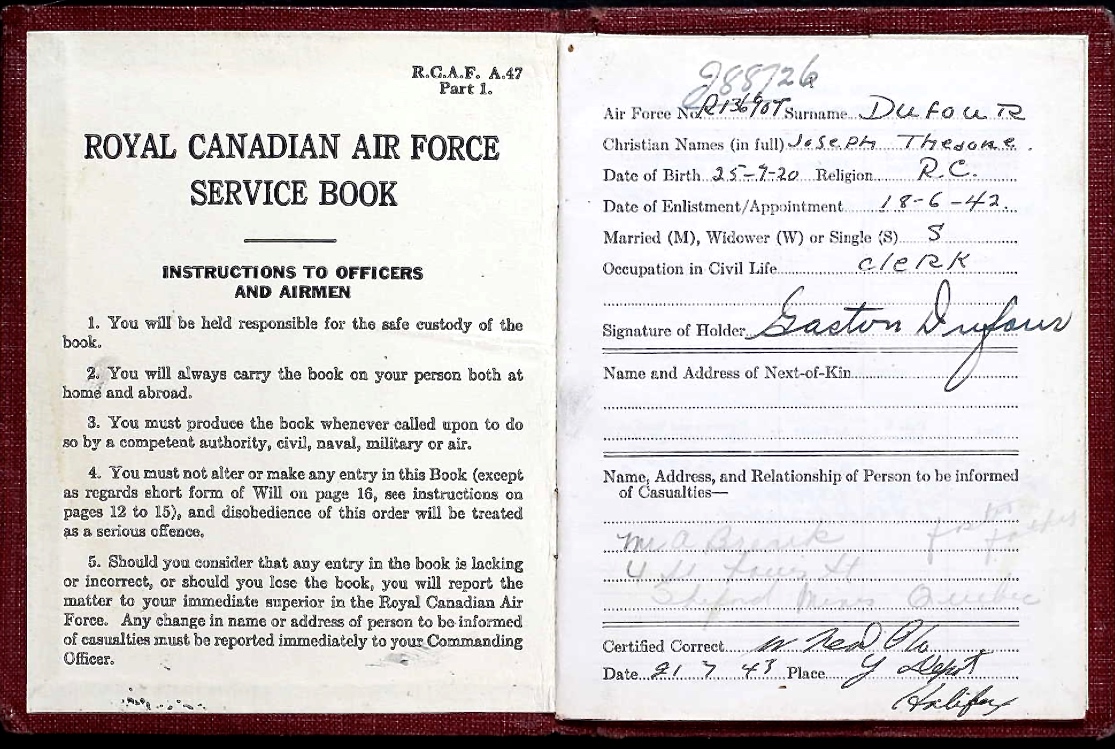 R.C.A.F. A.47
Part 1.
ROYAL CANADIAN AIR FORCE
SERVICE BOOK
INSTRUCTIONS TO OFFICERS
AND AIRMEN
1. You will be held responsible for the safe custody of the
book.
2. You will always carry the book on your person both at
home and abroad.
3. You must produce the book whenever called upon to do
so by a competent authority, civil, naval, military or air.
4. You must not alter or make any entry in this Book (except
as regards short form of Will on page 16, see instructions on
pages 12 to 15), and disobedience of this order will be treated
as a serious offence.
5. Should you consider that any entry in the book is lacking
or incorrect, or should you lose the book, you will report the
matter to your immediate superior in the Royal Canadian Air
Force. Any change in name or address of person to be informed
of casualties must be reported immediately to your Commanding
Officer.
J88726
Air Force No. Surname DUFOUR
Christian Names (in full) JOSEPH
Date of Birth 25-7-20 Religion R.C.
Date of Enlistment/Appointment 18-6-42.
Married (M), Widower (W) or Single (S) S
Occupation in Civil Life CleRK
Signature of Holder Gaston Dufour
Name and Address of Next-of-Kin
Name, Address, and Relationship of Person to be informed
of Casualties—
foster
Mr A father
4 St
Mines Quebec
Certified Correct
Date 21 7 43 Place Y Depot
Halifax